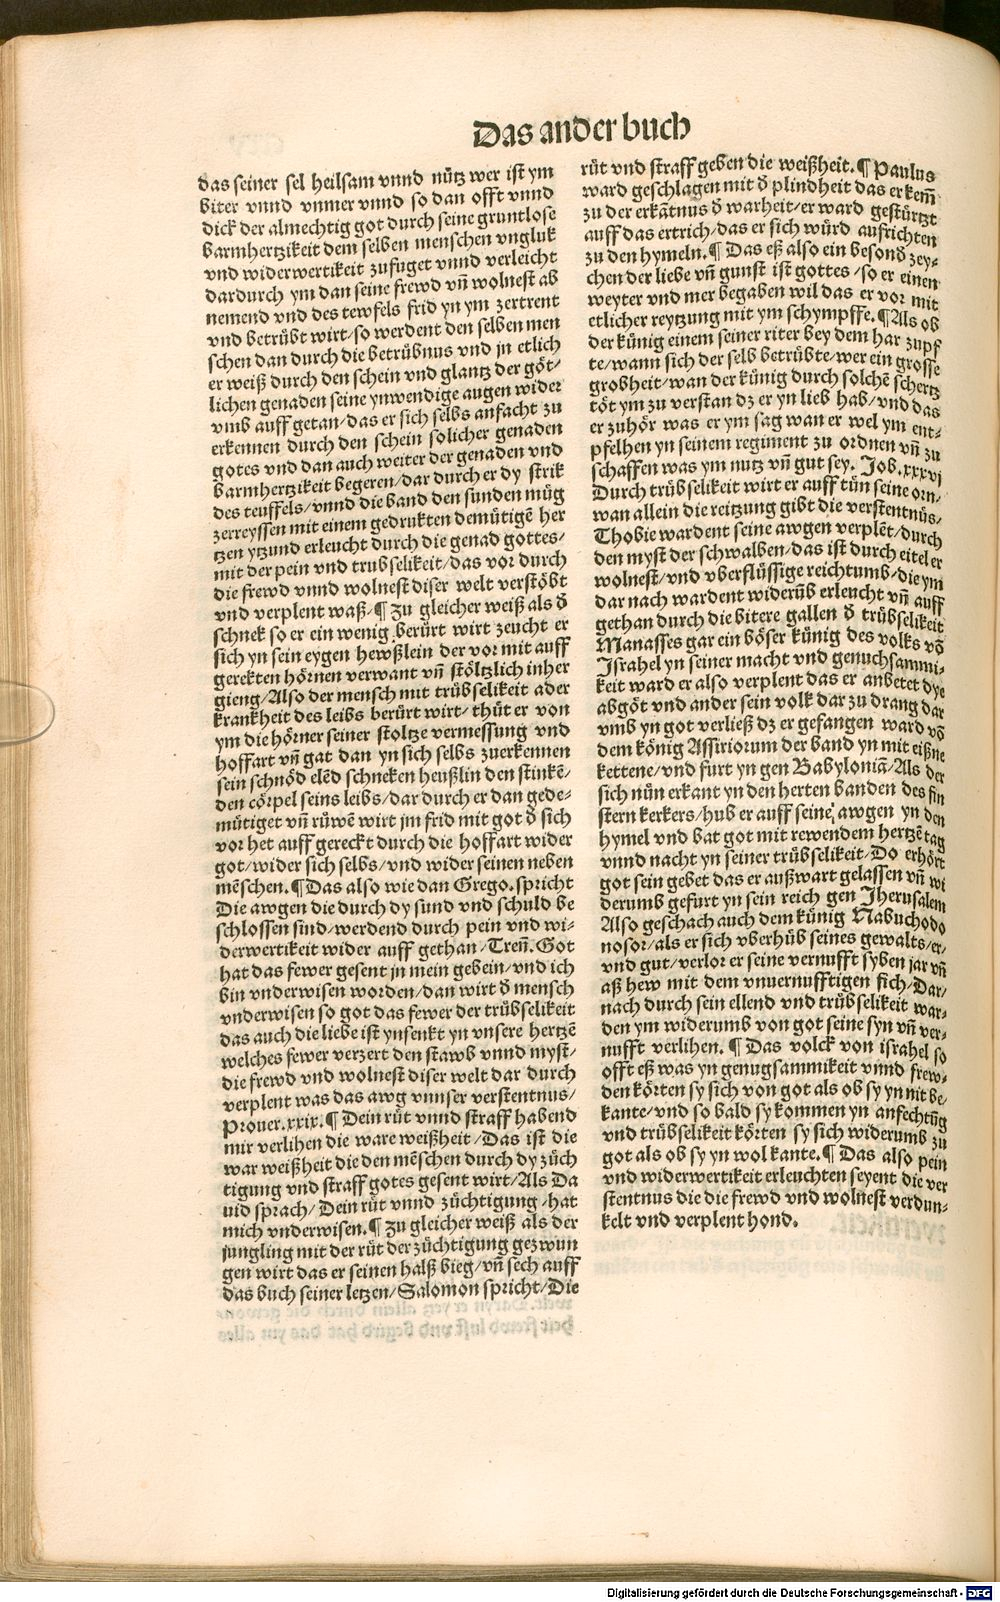 Das ander buch
das seiner sel heilsam vnnd nütz wer ist ym
biter vnnd vnmer vnnd so dan offt vnnd
dick der almechtig got durch seine gruntlose
barmhertzikeit dem selben menschen vngluk
vnd widerwertikeit zufuget vnnd verleicht
dardurch ym dan seine frewd vn̄ wolnest ab
nemend vnd des tewfels frid yn ym zertrent
vnd betrübt wirt/so werdent den selben men
schen dan durch die betrübnus vnd jn etlich
er weiß durch den schein vnd glantz der göt-
lichen genaden seine ynwendige augen wider
vmb auff getan/das er sich selbs anfacht zu
erkennen durch den schein solicher genaden
gotes vnd dan auch weiter der genaden vnd
barmhertzikeit begeren/dar durch er dy strik
des teuffels/vnnd die band den sunden müg
zerreyssen mit einem gedrukten demütigē her
tzen ytzund erleucht durch die genad gottes/
mit der pein vnd trubselikeit/das vor durch
die frewd vnnd wolnest diser welt verstöbt
vnd verplent waß.¶ Zu gleicher weiß als d̄
schnek so er ein wenig berürt wirt zeucht er
sich yn sein eygen hewßlein der vor mit auff
gerekten hörnen verwant vn̄ stöltzlich inher
gieng/Also der mensch mit trübselikeit ader
krankheit des leibs berürt wirt/thüt er von
ym die hörner seiner stoltze vermessung vnd
hoffart vn̄ gat dan yn sich selbs zuerkennen
sein schnöd elēd schneken heußlin den stinkē/
den cörpel seins leibs/dar durch er dan gede-
mütiget vn̄ rüwē wirt jm frid mit got d̄ sich
vor het auff gereckt durch die hoffart wider
got/wider sich selbs/vnd wider seinen neben
mēschen.¶ Das also wie dan Grego.spricht
Die awgen die durch dy sund vnd schuld be
schlossen sind/werdend durch pein vnd wi-
derwertikeit wider auff gethan/Tren̄.Got
hat das fewer gesent jn mein gebein/vnd ich
bin vnderwisen worden/dan wirt d̄ mensch
vnderwisen so got das fewer der trübselikeit
das auch die liebe ist ynsenkt yn vnsere hertzē
welches fewer verzert den stawb vnnd myst/
die frewd vnd wolnest diser welt dar durch
verplent was das awg vnnser verstentnus/
Prouer.xxix.¶ Dein rüt vnnd straff habend
mir verlihen die ware weißheit/Das ist die
war weißheit die den mēschen durch dy züch
tigung vnd straff gotes gesent wirt/Als Da
uid sprach/Dein rüt vnnd züchtigung hat
mich vnderwisen.¶ Zu gleicher weiß als der
jungling mit der rüt der züchtigung gezwun
gen wirt das er seinen halß bieg/vn̄ sech auff
das buch seiner letzen/Salomon spricht/Die
rüt vnd straff geben die weißheit.¶ Paulus
ward geschlagen mit d̄ plindheit das er kem̄
zu der erkātnus d̄ warheit/er ward gestürtzt
auff das ertrich/das er sich würd aufrichten
zu den hymeln.¶ Das eß also ein besond̄ zey-
chen der liebe vn̄ gunst ist gottes/so er einen
weyter vnd mer begaben wil das er vor mit
etlicher reytzung mit ym schympffe.¶ Als ob
der künig einem seiner riter bey dem har zupf
te/wann sich der selb betrübte/wer ein grosse
grobheit/wan der künig durch solchē schertz
töt ym zu verstan dz er yn lieb hab/vnd das
er zuhör was er ym sag wan er wel ym ent-
pfelhen yn seinem regiment zu ordnen vn̄ zu
schaffen was ym nutz vn̄ gut sey. Job.xxxvi
Durch trübselikeit wirt er auff tün seine orn/
wan allein die reitzung gibt die verstentnüs/
Thobie wardent seine awgen verplēt/durch
den myst der schwalben/das ist durch eitel er
wolnest/vnd vberflüssige reichtumb/die ym
dar nach wardent widerūb erleucht vn̄ auff
gethan durch die bitere gallen d̄ trübselikeit
Manasses gar ein böser künig des volks vō
Israhel yn seiner macht vnd genuchsammi-
keit ward er also verplent das er anbetet dye
abgöt vnd ander sein volk dar zu drang dar
vmb yn got verließ dz er gefangen ward vō
dem könig Assiriorum der band yn mit eißne
kettene/vnd furt yn gen Babyloniā/Als der
sich nün erkant yn den herten banden des fin
stern kerkers/hub er auff seine awgen yn den
hymel vnd bat got mit rewendem hertzē tag
vnnd nacht yn seiner trübselikeit/Do erhört
got sein gebet das er außwart gelassen vn̄ wi
derumb gefurt yn sein reich gen Jherusalem
Also geschach auch dem künig Nabuchodo
nosor/als er sich vberhüb seines gewalts/er/
vnd gut/verlor er seine vernufft syben jar vn̄
aß hew mit dem vnuernufftigen fich/Dar/
nach durch sein ellend vnd trübselikeit war-
den ym widerumb von got seine syn vn̄ ver-
nufft verlihen.¶ Das volck von israhel so
offt eß was yn genugsammikeit vnnd frew-
den körten sy sich von got als ob sy yn nit be-
kante/vnd so bald sy kommen yn anfechtūg
vnd trübselikeit körten sy sich widerumb zu
got als ob sy yn wol kante.¶ Das also pein
vnd widerwertikeit erleuchten seyent die ver
stentnus die die frewd vnd wolnest verdun-
kelt vnd verplent hond.
Digitalisierung gefördert durch die Deutsche Forschungsgemeinschaft - DFG